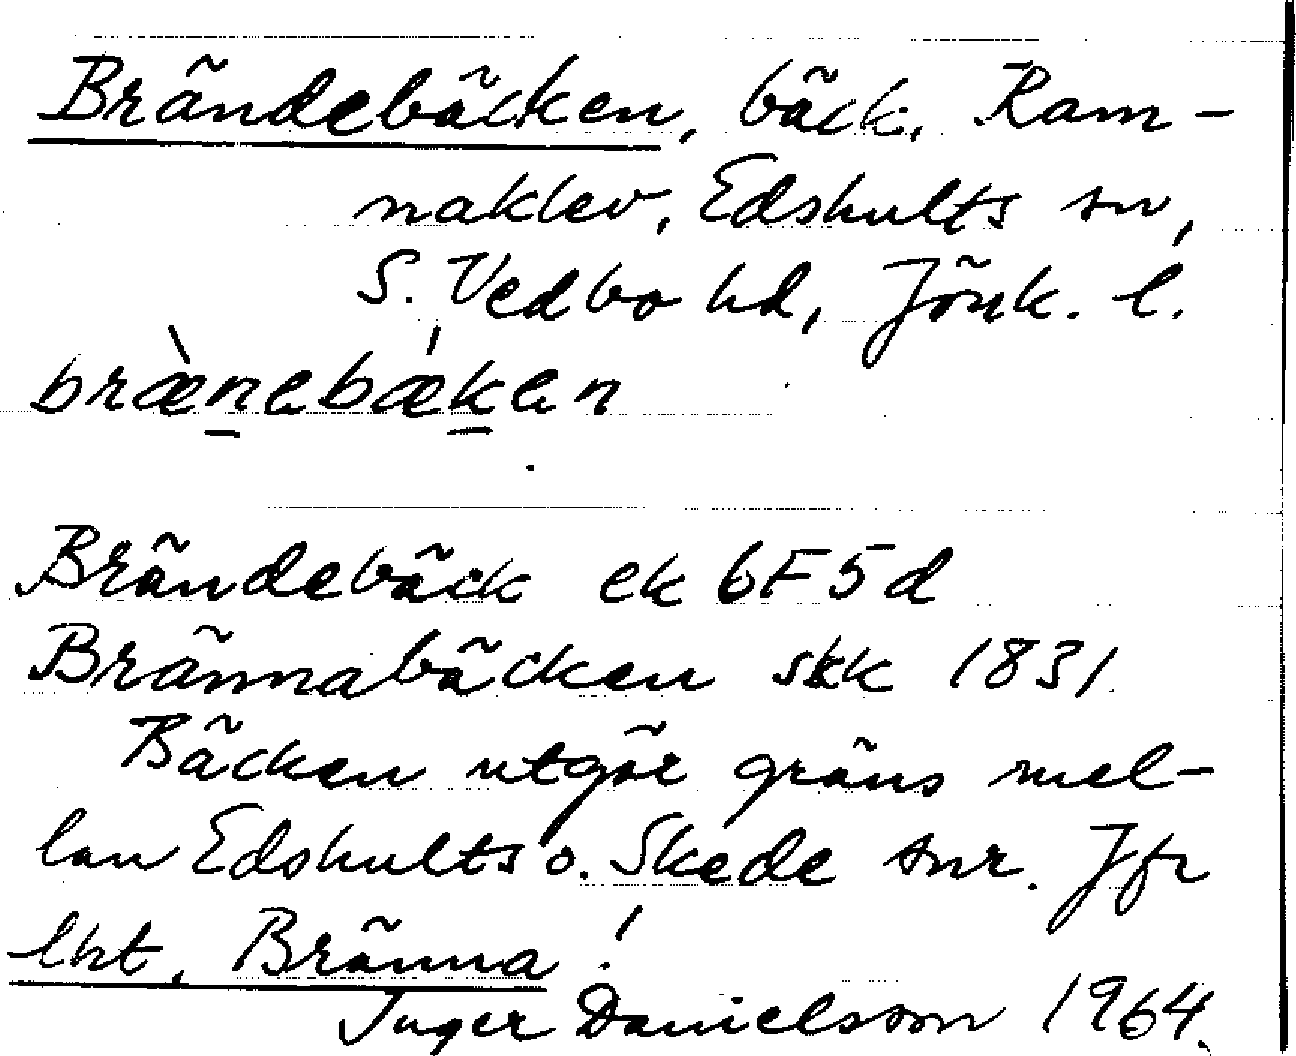 Brändebäcken, bäck, Ram-
naklev, Edshults sn,
S. Vedbo hd, Jönk. l.
bræ̀nebǽken
Brändebäck ek 6F5d
Brännabäcken skk 1831
Bäcken utgör gräns mel-
lan Edshults o. Skede snr. Jfr
lht. Bränna!
Inger Danielsson 1964.